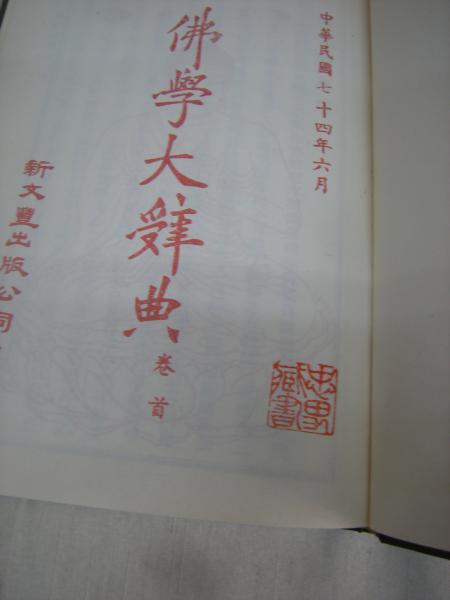 中華民國七十四年六月
佛學大辭典 卷首
新文豐出版公司
忠男
藏書